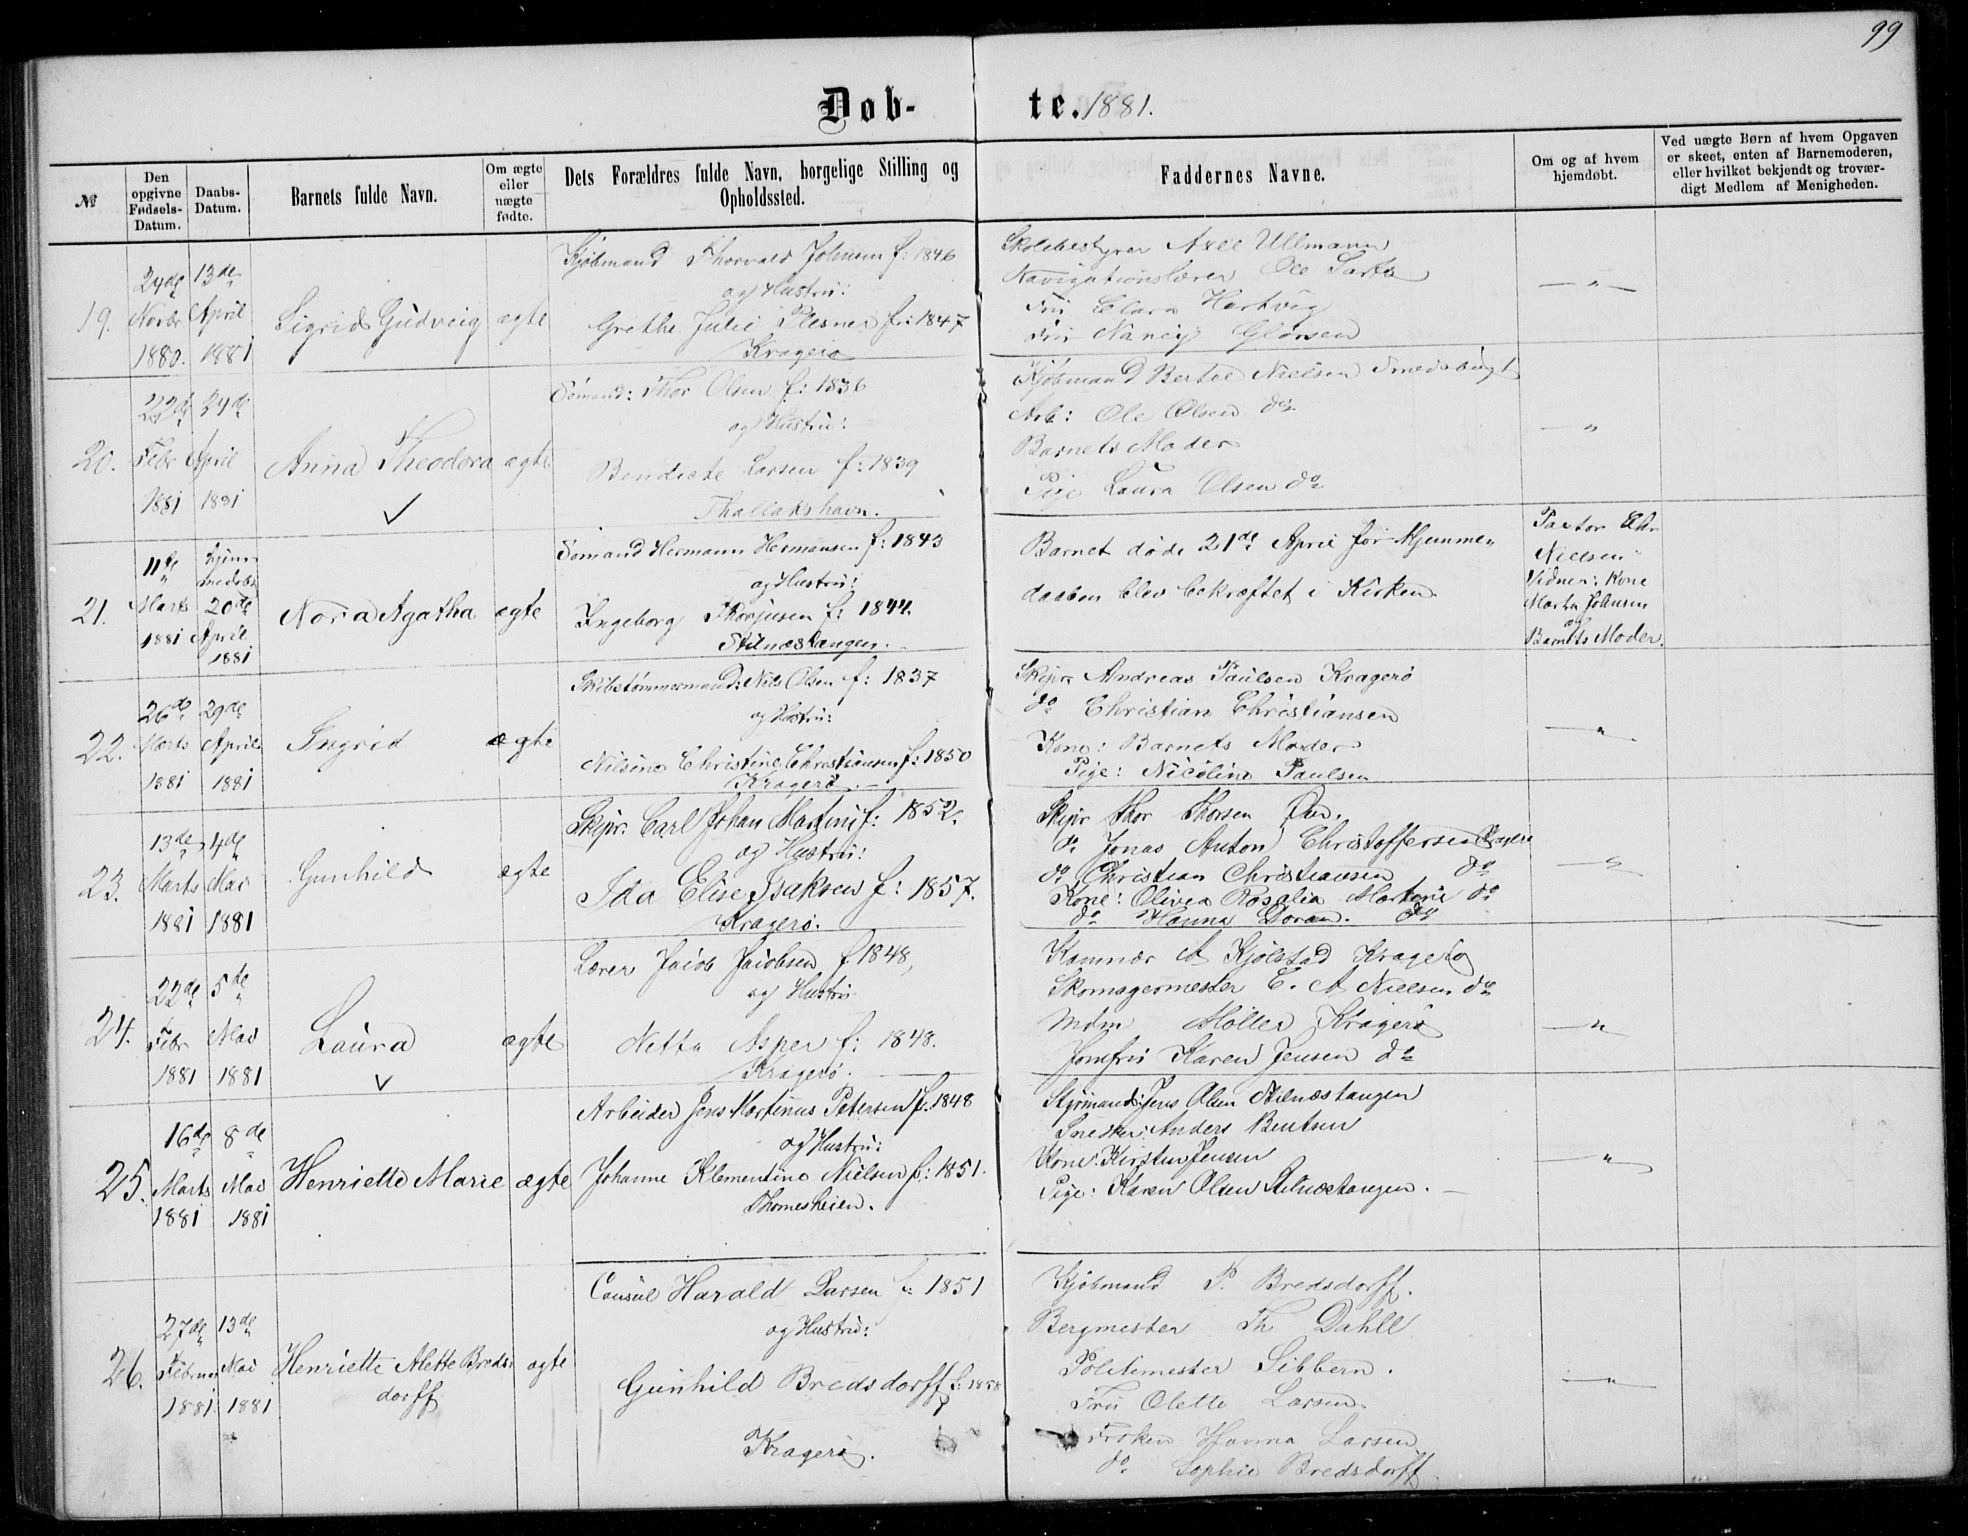 99
Døb-te. 1881.
№
Den opgivne Fødsels-Datum.
Daabs-Datum.
Barnets fulde Navn.
Om ægte eller uægte fødte.
Dets Forældres fulde Navn, borgelige Stilling og Opholdssted.
Faddernes Navne.
Om og af hvem hjemdøbt.
Ved uægte Børn af hvem Opgaven er skeet, enten af Barnemoderen, eller hvilket bekjendt og troværdigt Medlem af Menigheden.
19.
24de Novbr 1880.
13de April 1881
Sigrid Gudveig
ægte
Kjøbmand Thorvald Johnsen f: 1846
og Hustru:
Grethe Julie Plesner f: 1847
Kragerø
Skolebestyrer Axel Ullmann
Navigationslærer Ole
Fru Clara Hertvig
Fru Nancy
— " —
20.
22de Febr 1881
24de April 1881
Anna Theodora
ægte
Sømand: Thor Olsen f: 1836
og Hustru:
Bendicte Larsen f: 1839
Thallakshavn.
Kjøbmand Bertel Nielsen Smedsbugt
Arb: Ole Olsen do
Barnets Moder
Pige Laura Olsen do
— " —
21.
11te Marts 1881
hjemmedøbt 20de April 1881
Nora Agatha
ægte
Sømand Hermann Hermansen f: 1843
og Hustru:
Ingeborg Thorjusen f: 1844.
Stilnæstangen.
Barnet døde 21de April før Hjemme-
daaben blev bekræftet i Kirken
Pastor Chr
Nielsen
Vidner: Kone
Martha Johnsen
og
Barnets Moder.
22.
26de Marts 1881
29de April 1881
Ingrid
ægte
Skibstømmermand: Nils Olsen f: 1837
og Hustru:
Nilsine Christine Christiansen f: 1850
Kragerø.
Skipr Andreas Paulsen Kragerø
do Christian Christiansen
Kone: Barnets Moder
Pige: Nicoline Paulsen
— " —
23.
13de Marts 1881
4de Mai 1881
Gunhild
ægte
Skipr. Carl Johan Martini f: 1852.
og Hustru:
Ida Elise Isaksen f: 1857.
Kragerø.
Skipr Thor Thorsen
do Jonas Anton Christoffersen Kragerø
do Christian Christiansen do
Kone: Olivia Rosalia Martini do
do Hanna do
— " —
24.
22de Febr 1881
5te Mai 1881
Laura
ægte
Lærer Jacob Jacobsen f 1848,
og Hustru
Netta Asper f: 1848.
Kragerø.
Kæmnær A Kjølstad Kragerø
Skomagermester C. A Nielsen do
Mdm Møller Kragerø
Jomfru Karen Jensen do
— " —
25.
16de Marts 1881
8de Mai 1881
Henriette Marie
ægte
Arbeider Jens Martinus Petersen f: 1848
og Hustru:
Johanne Klementine Nielsen f: 1851.
Thomesheien.
Styrmand: Jens Olsen Stilnæstangen
Snedker: Anders Bentsen
Kone: Kirsten Jensen
Pige: Karen Olsen Stilnæstangen.
— " —
26.
27de Februar 1881
13de Mai 1881
Henriette Alette Breds-
dorff
ægte
Consul Harald Larsen f: 1851
og Hustru:
Gunhild Bredsdorff f: 1858
Kragerø.
Kjøbmand P. Bredsdorff.
Bergmester Th Dahll
Politimester Sibbern.
Fru Olette Larsen
Frøken Hanna Larsen
do Sophie Bredsdorff
— " —